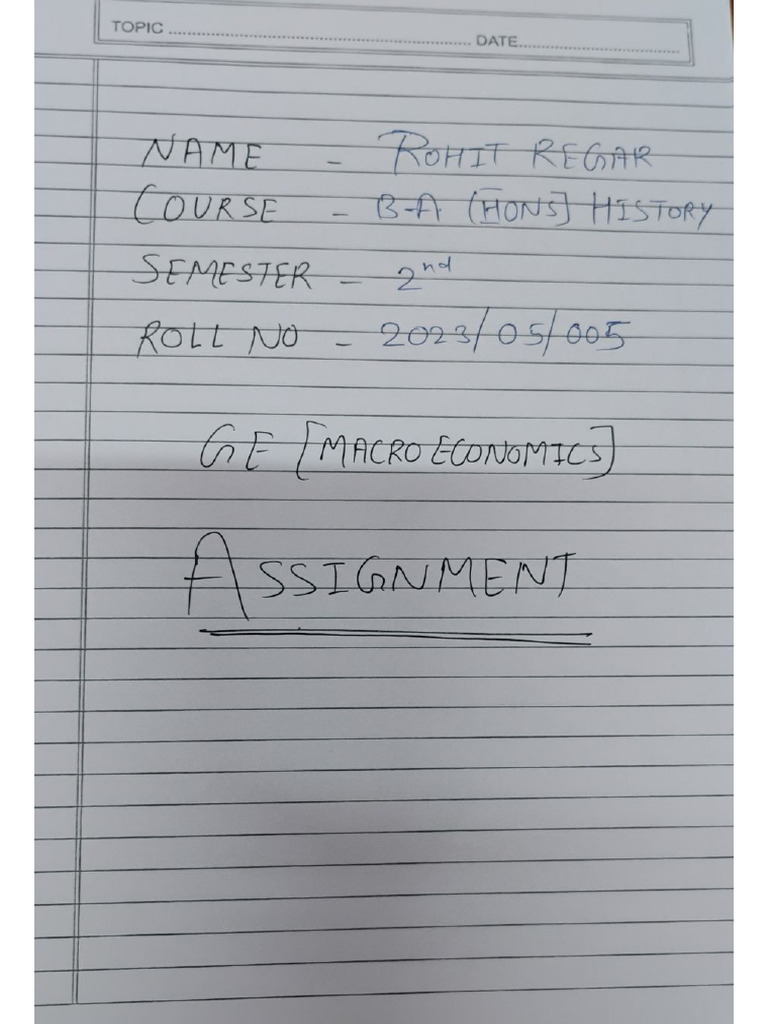 TOPIC ........................ DATE........................
NAME - ROHIT REGAR
COURSE - B-A. (HONS] HISTORY
SEMESTER - 2nd
ROLL NO - 2023/05/005
GE [MACRO ECONOMICS]
ASSIGNMENT